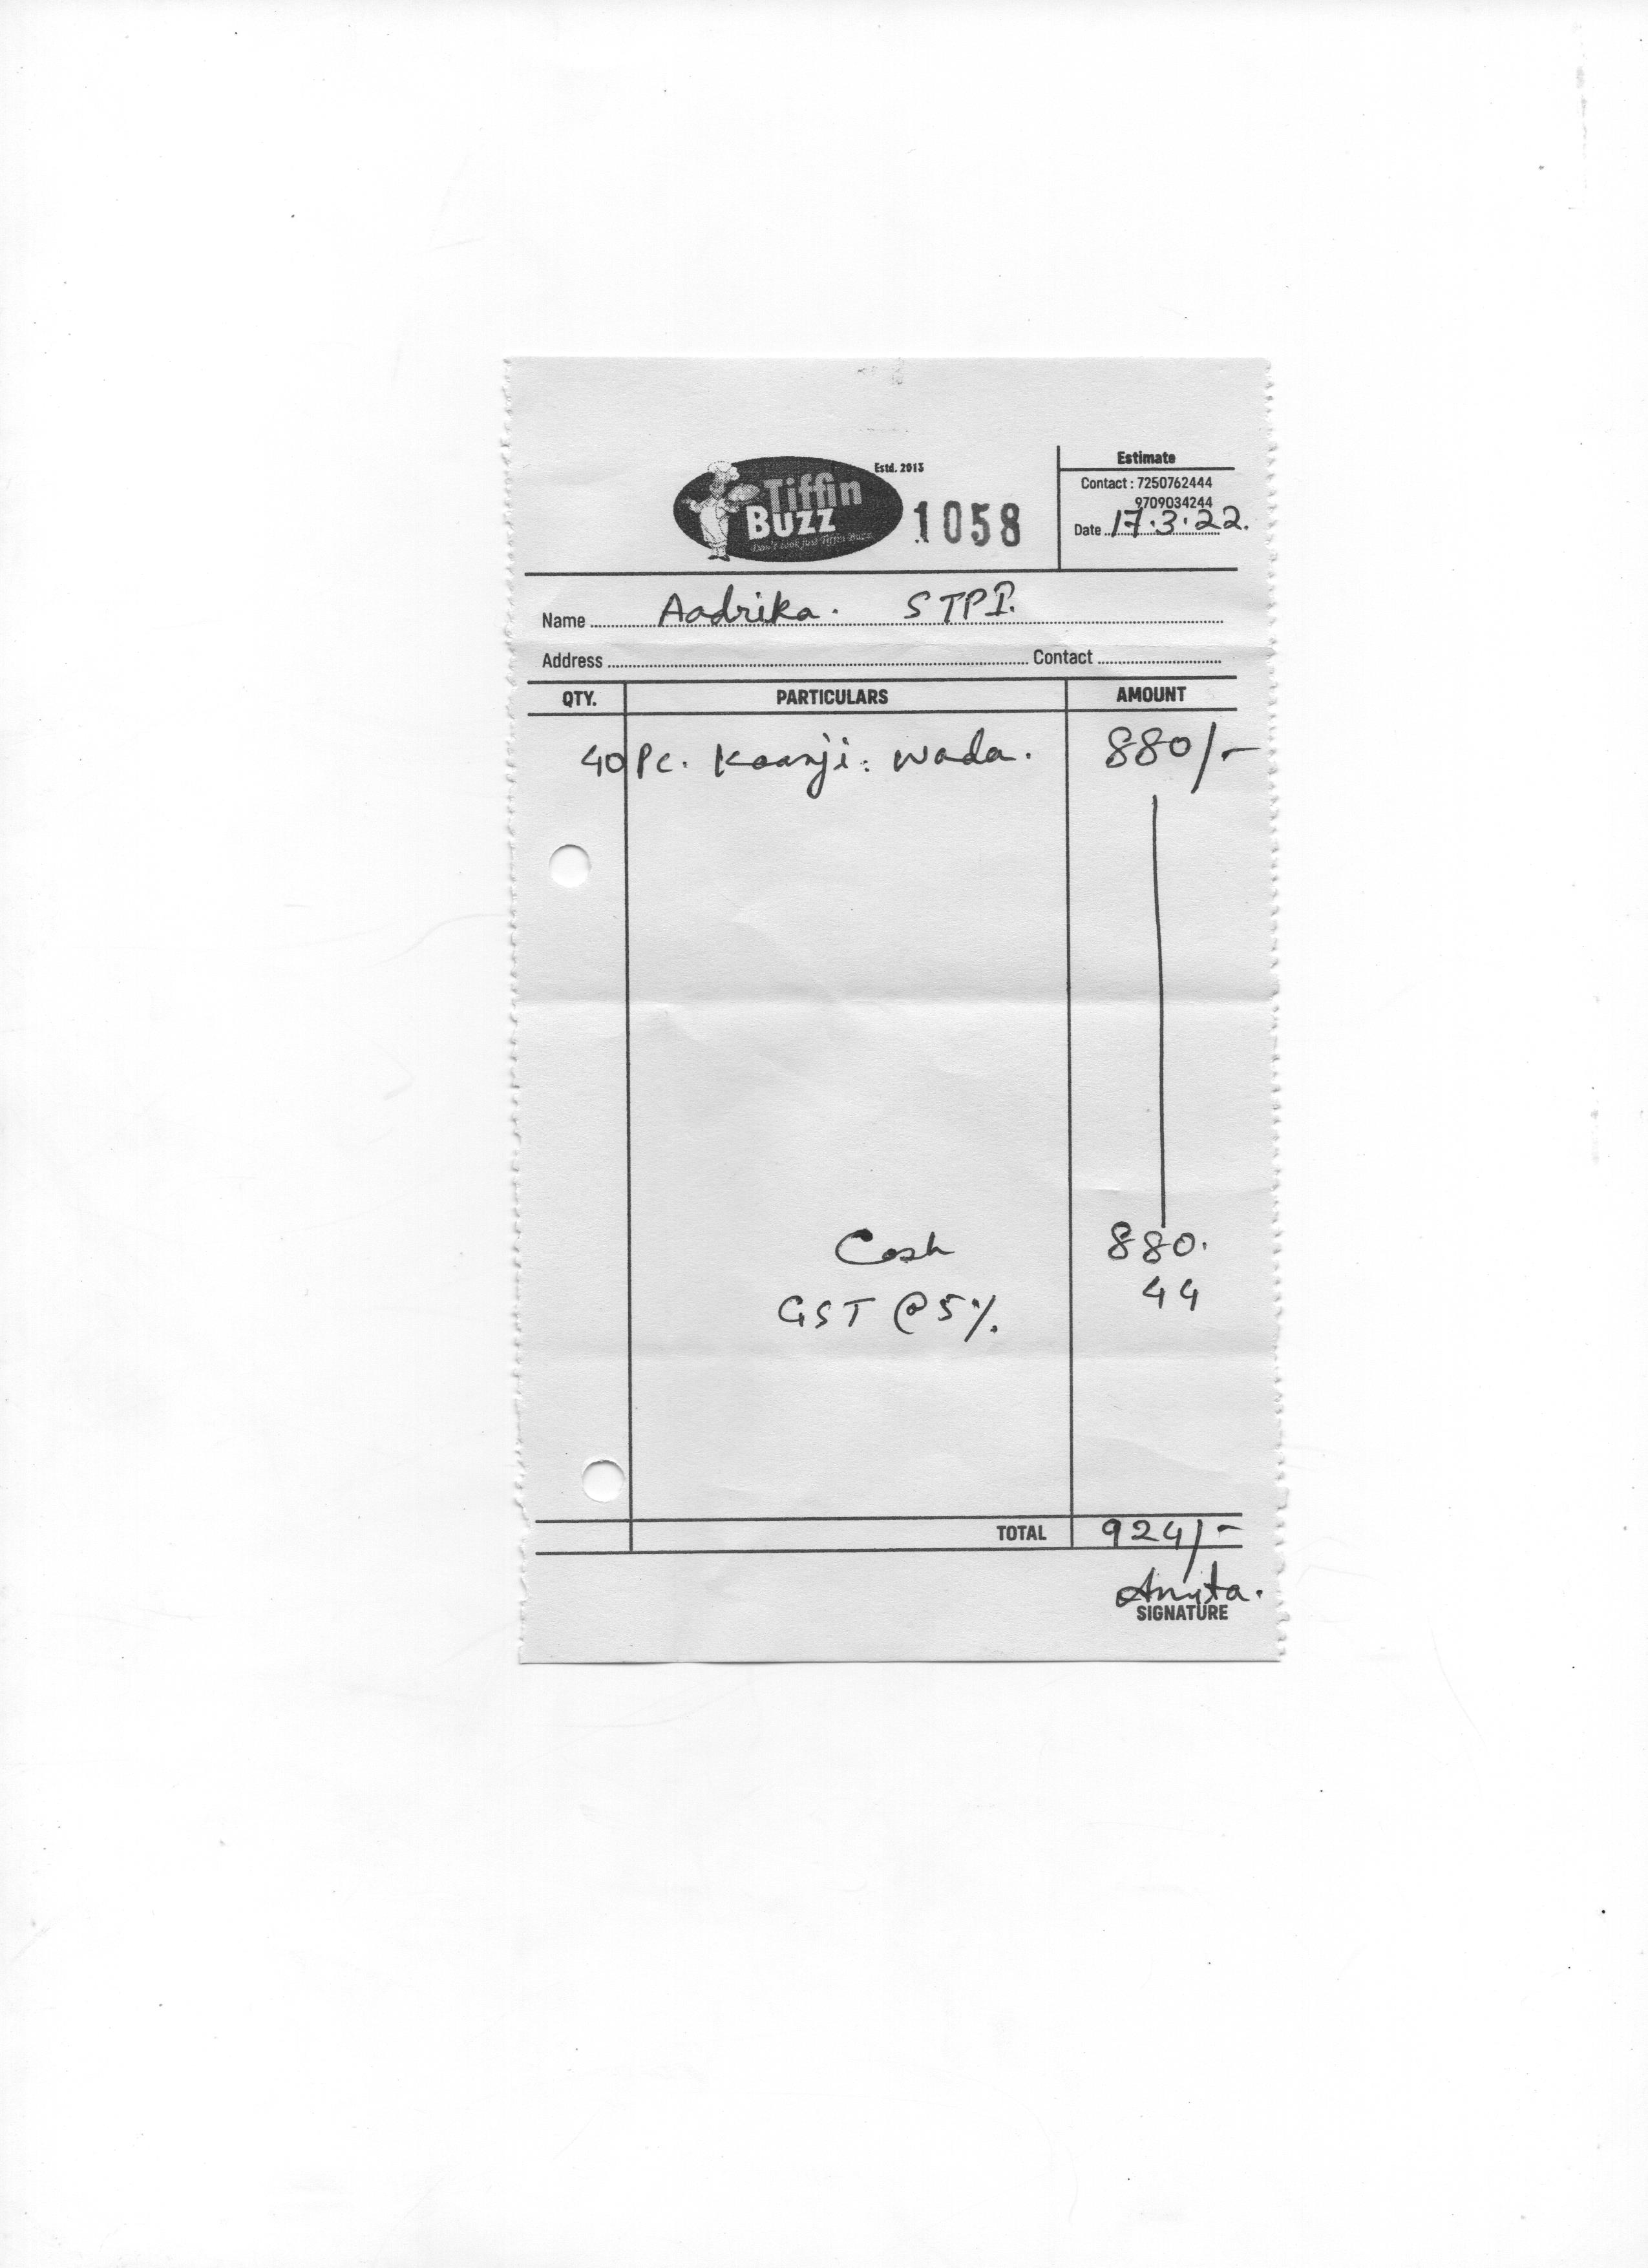 Estd. 2013
Tiffin
BUZZ
Don't cook just Tiffin Buzz
1058
Estimate
Contact : 7250762444
9709034244
Date 17.3.22.
Name Aadrika. STPI.
Address Contact
QTY. PARTICULARS AMOUNT
40 Pc. Kaanji. Wada. 880/-
Cash 880.
GST @ 5% 44
TOTAL 924/-
Amita.
SIGNATURE